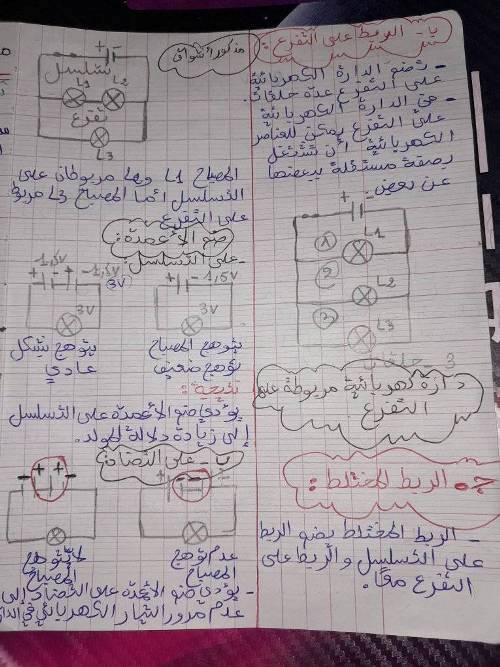 ب - الربط على التفرع :
- تضم الدارة الكهربائية
على التفرع عدة حلقات.
- في الدارة الكهربائية
على التفرع يمكن للعناصر
الكهربائية أن تشتغل
بصفة مستقلة ببعضها
عن بعض.
+ -
L1
1
2
L2
3
L3
3 حلقات
دارة كهربائية مربوطة على
التفرع
ج- الربط المختلط :
- الربط المختلط يضم الربط
على التسلسل والربط على
التفرع معًا.
+ -
تسلسل
L1 L2
تفرع
L3
المصباح L1 و L2 مربوطان على
التسلسل أما المصباح L3 مربوط
على التفرع
ضم الأعمدة :
- على التسلسل :
1,5V
+ - + - 1,5V
3V
3V
+ - 1,5V
3V
يتوهج المصباح
توهج ضعيف
يتوهج بشكل
عادي
نتيجة :
يؤدي ضم الأعمدة على التسلسل
إلى زيادة دلالة المولد.
ب - على التضاد :
- + + -
+ - - +
عدم توهج
المصباح
لا يتوهج
المصباح
- يؤدي ضم الأعمدة على التضاد إلى
عدم مرور التيار الكهربائي في